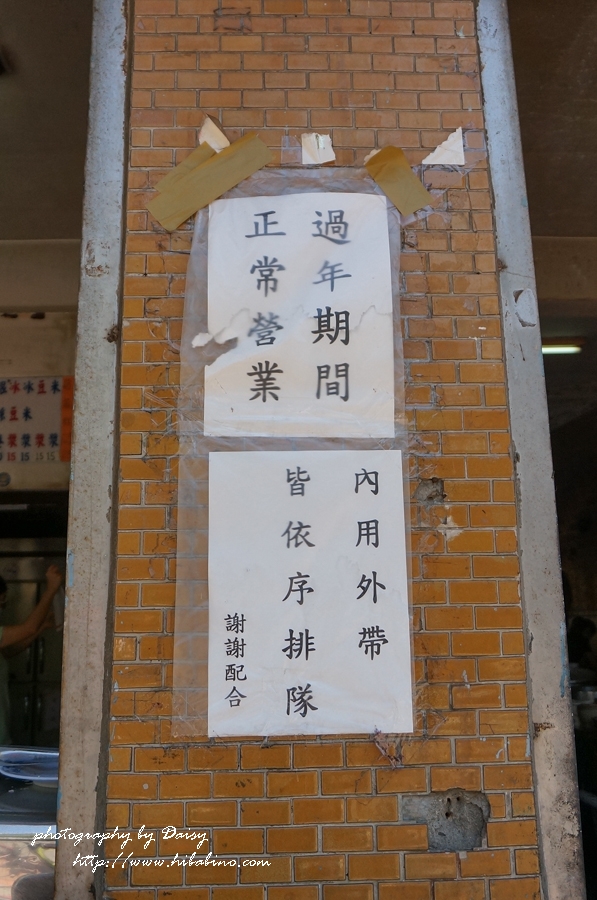 過年期間
正常營業
內用外帶
皆依序排隊
謝謝配合
photography by Daisy
http://www.hibabino.com